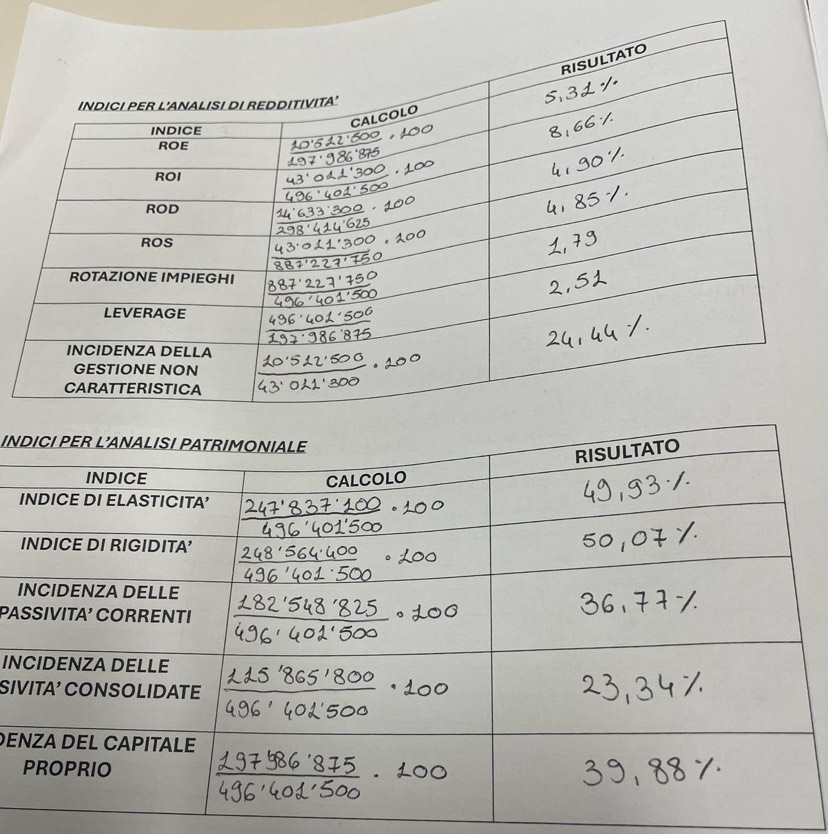 INDICI PER L'ANALISI DI REDDITIVITA'
INDICE CALCOLO RISULTATO
ROE 10'512'500 / 197'986'875 · 100 5,31%
ROI 43'011'300 / 496'401'500 · 100 8,66%
ROD 14'633'300 / 298'414'625 · 100 4,90%
ROS 43'011'300 / 887'227'750 · 100 4,85%
ROTAZIONE IMPIEGHI 887'227'750 / 496'401'500 1,79
LEVERAGE 496'401'500 / 197'986'875 2,51
INCIDENZA DELLA
GESTIONE NON
CARATTERISTICA 10'512'500 / 43'011'300 · 100 24,44%
INDICI PER L'ANALISI PATRIMONIALE
INDICE CALCOLO RISULTATO
INDICE DI ELASTICITA' 247'837'100 / 496'401'500 · 100 49,93%
INDICE DI RIGIDITA' 248'564'400 / 496'401'500 · 100 50,07%
INCIDENZA DELLE
PASSIVITA' CORRENTI 182'548'825 / 496'401'500 · 100 36,77%
INCIDENZA DELLE
SIVITA' CONSOLIDATE 115'865'800 / 496'401'500 · 100 23,34%
DENZA DEL CAPITALE
PROPRIO 197'986'875 / 496'401'500 · 100 39,88%